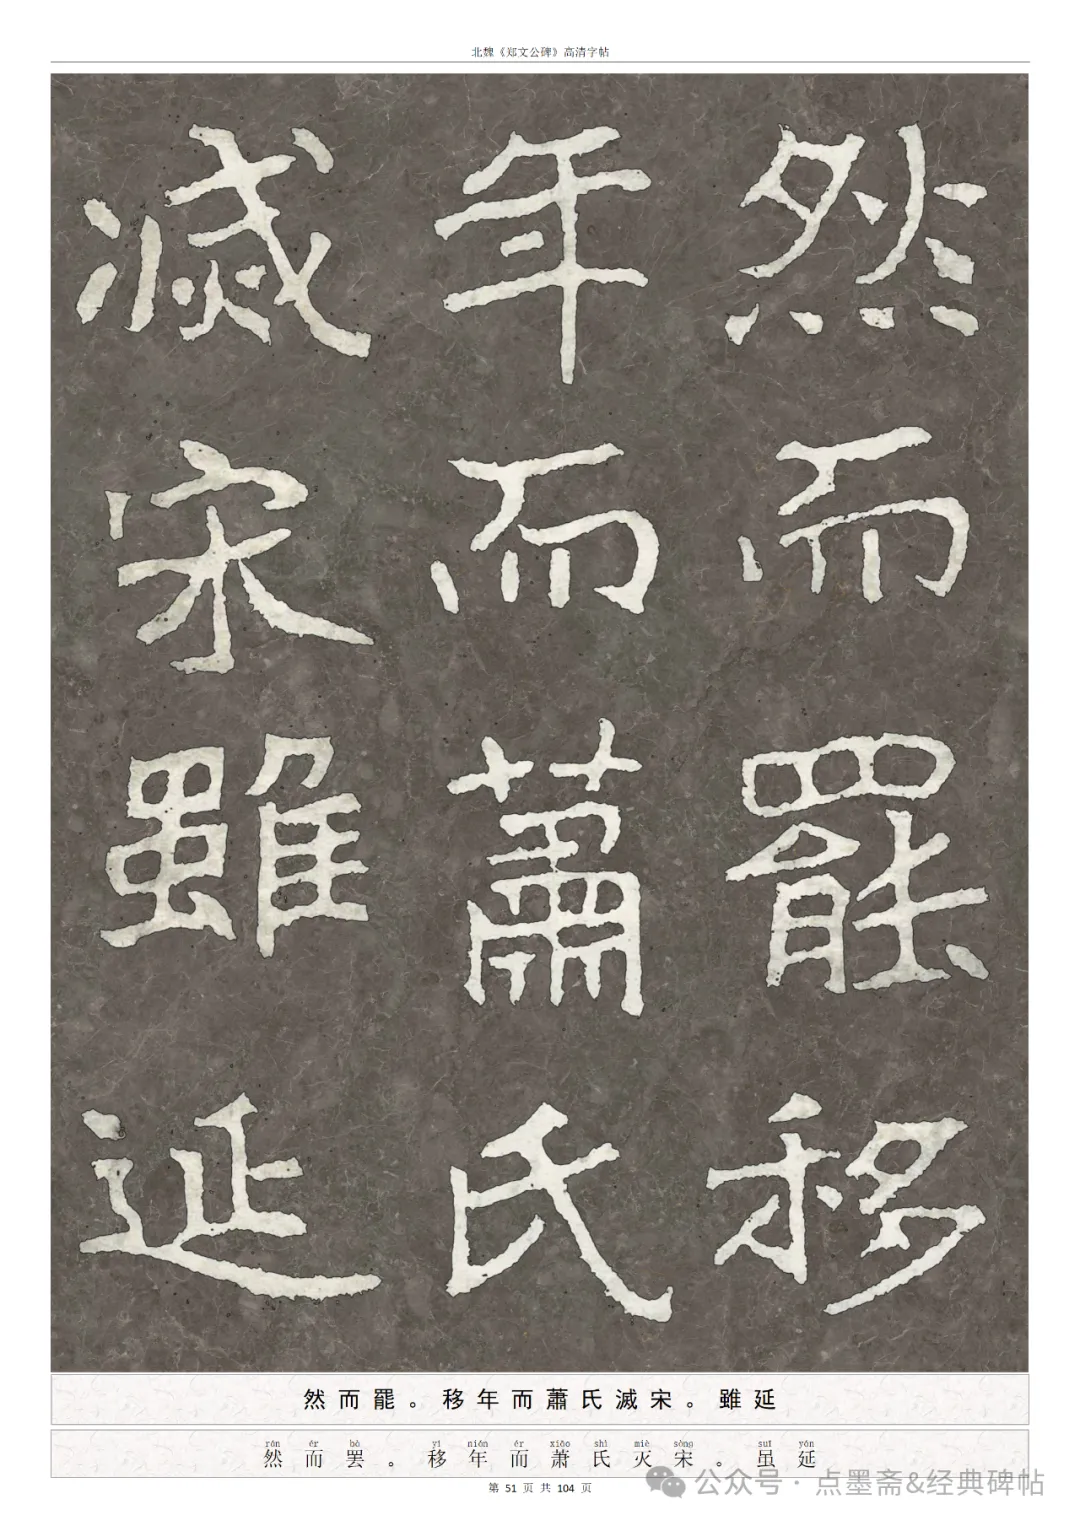 北魏《郑文公碑》高清字帖
然而罷移
年而蕭氏
滅宋雖延
然而罷。移年而蕭氏滅宋。雖延
rán ér bà yí nián ér xiāo shì miè sòng suī yán
然而罢。移年而萧氏灭宋。虽延
第 51 页 共 104 页
公众号·点墨斋&经典碑帖